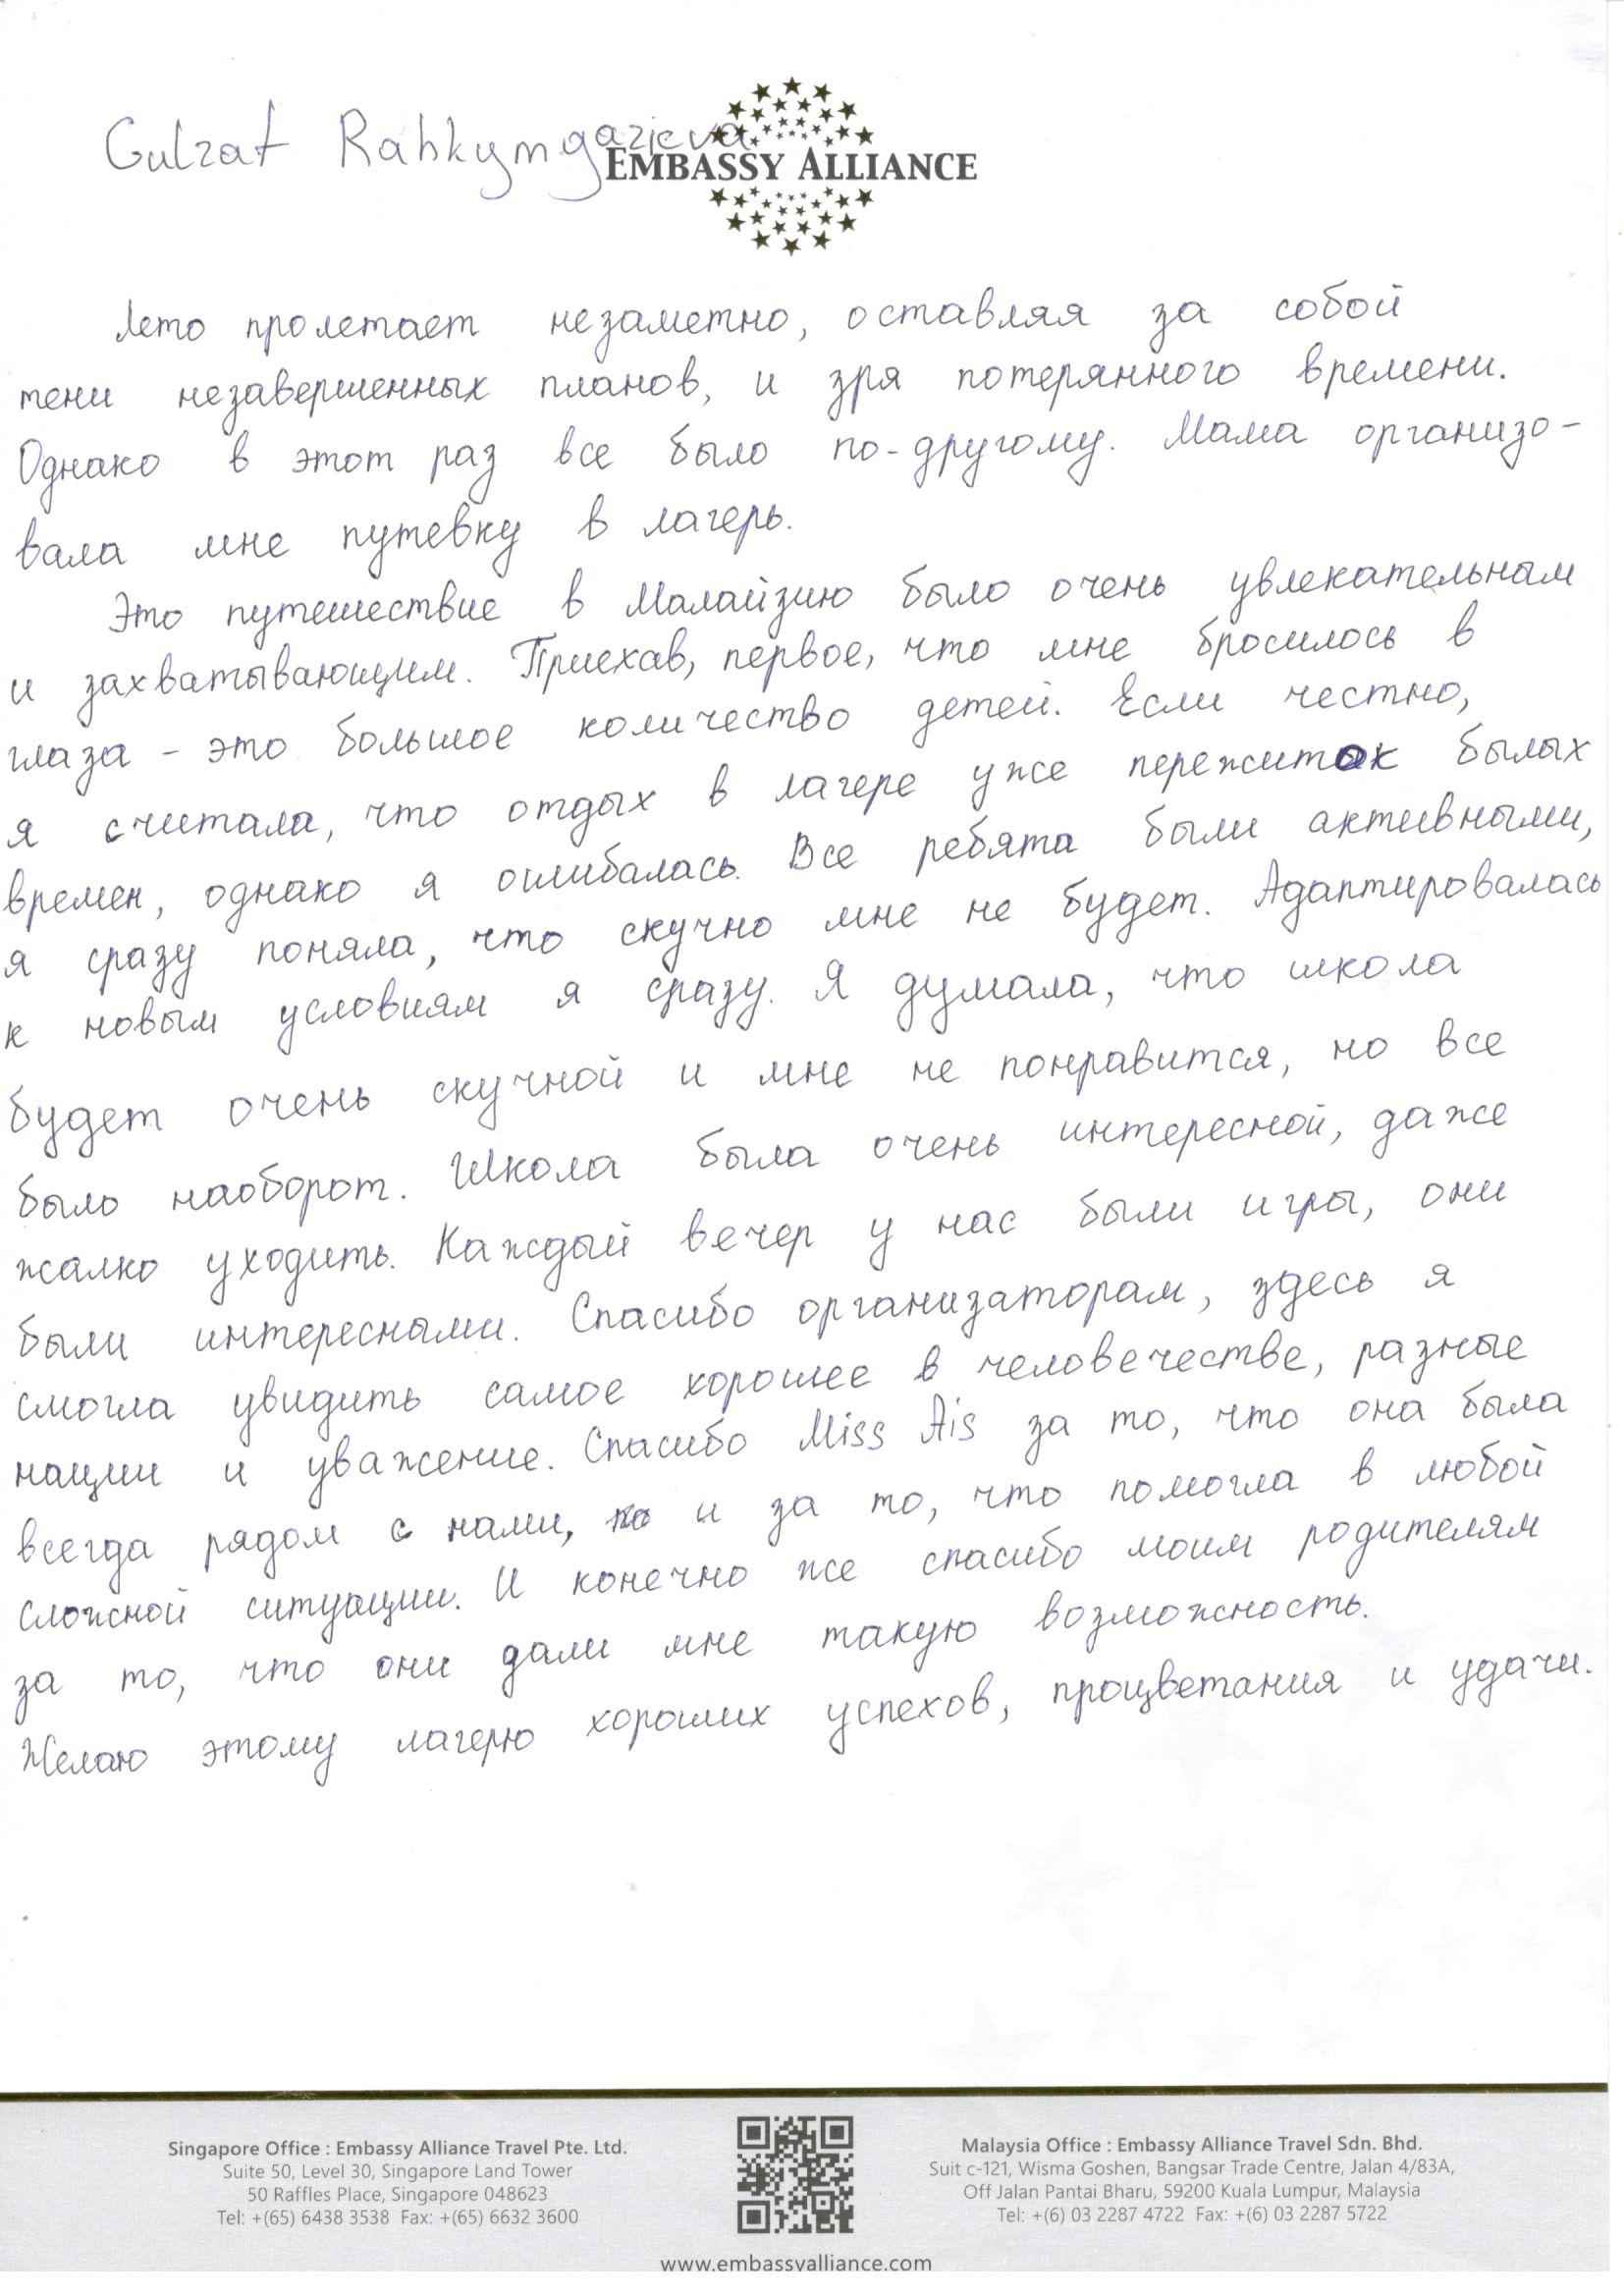 Gulzat Rahkymgazieva
EMBASSY ALLIANCE
Лето пролетает незаметно, оставляя за собой
тени незавершенных планов, и зря потерянного времени.
Однако в этот раз все было по-другому. Мама организо-
вала мне путевку в лагерь.
Это путешествие в Малайзию было очень увлекательным
и захватывающим. Приехав, первое, что мне бросилось в
глаза - это большое количество детей. Если честно,
я считала, что отдых в лагере уже пережиток былых
времен, однако я ошибалась. Все ребята были активными,
я сразу поняла, что скучно мне не будет. Адаптировалась
к новым условиям я сразу. Я думала, что школа
будет очень скучной и мне не понравится, но все
было наоборот. Школа была очень интересной, даже
жалко уходить. Каждый вечер у нас были игры, они
были интересными. Спасибо организаторам, здесь я
смогла увидить самое хорошее в человечестве, разные
нации и уважение. Спасибо Miss Ais за то, что она была
всегда рядом с нами, и за то, что помогла в любой
сложной ситуации. И конечно же спасибо моим родителям
за то, что они дали мне такую возможность.
Желаю этому лагерю хороших успехов, процветания и удачи.
Singapore Office : Embassy Alliance Travel Pte. Ltd.
Suite 50, Level 30, Singapore Land Tower
50 Raffles Place, Singapore 048623
Tel: +(65) 6438 3538 Fax: +(65) 6632 3600
Malaysia Office : Embassy Alliance Travel Sdn. Bhd.
Suit c-121, Wisma Goshen, Bangsar Trade Centre, Jalan 4/83A,
Off Jalan Pantai Bharu, 59200 Kuala Lumpur, Malaysia
Tel: +(6) 03 2287 4722 Fax: +(6) 03 2287 5722
www.embassyalliance.com